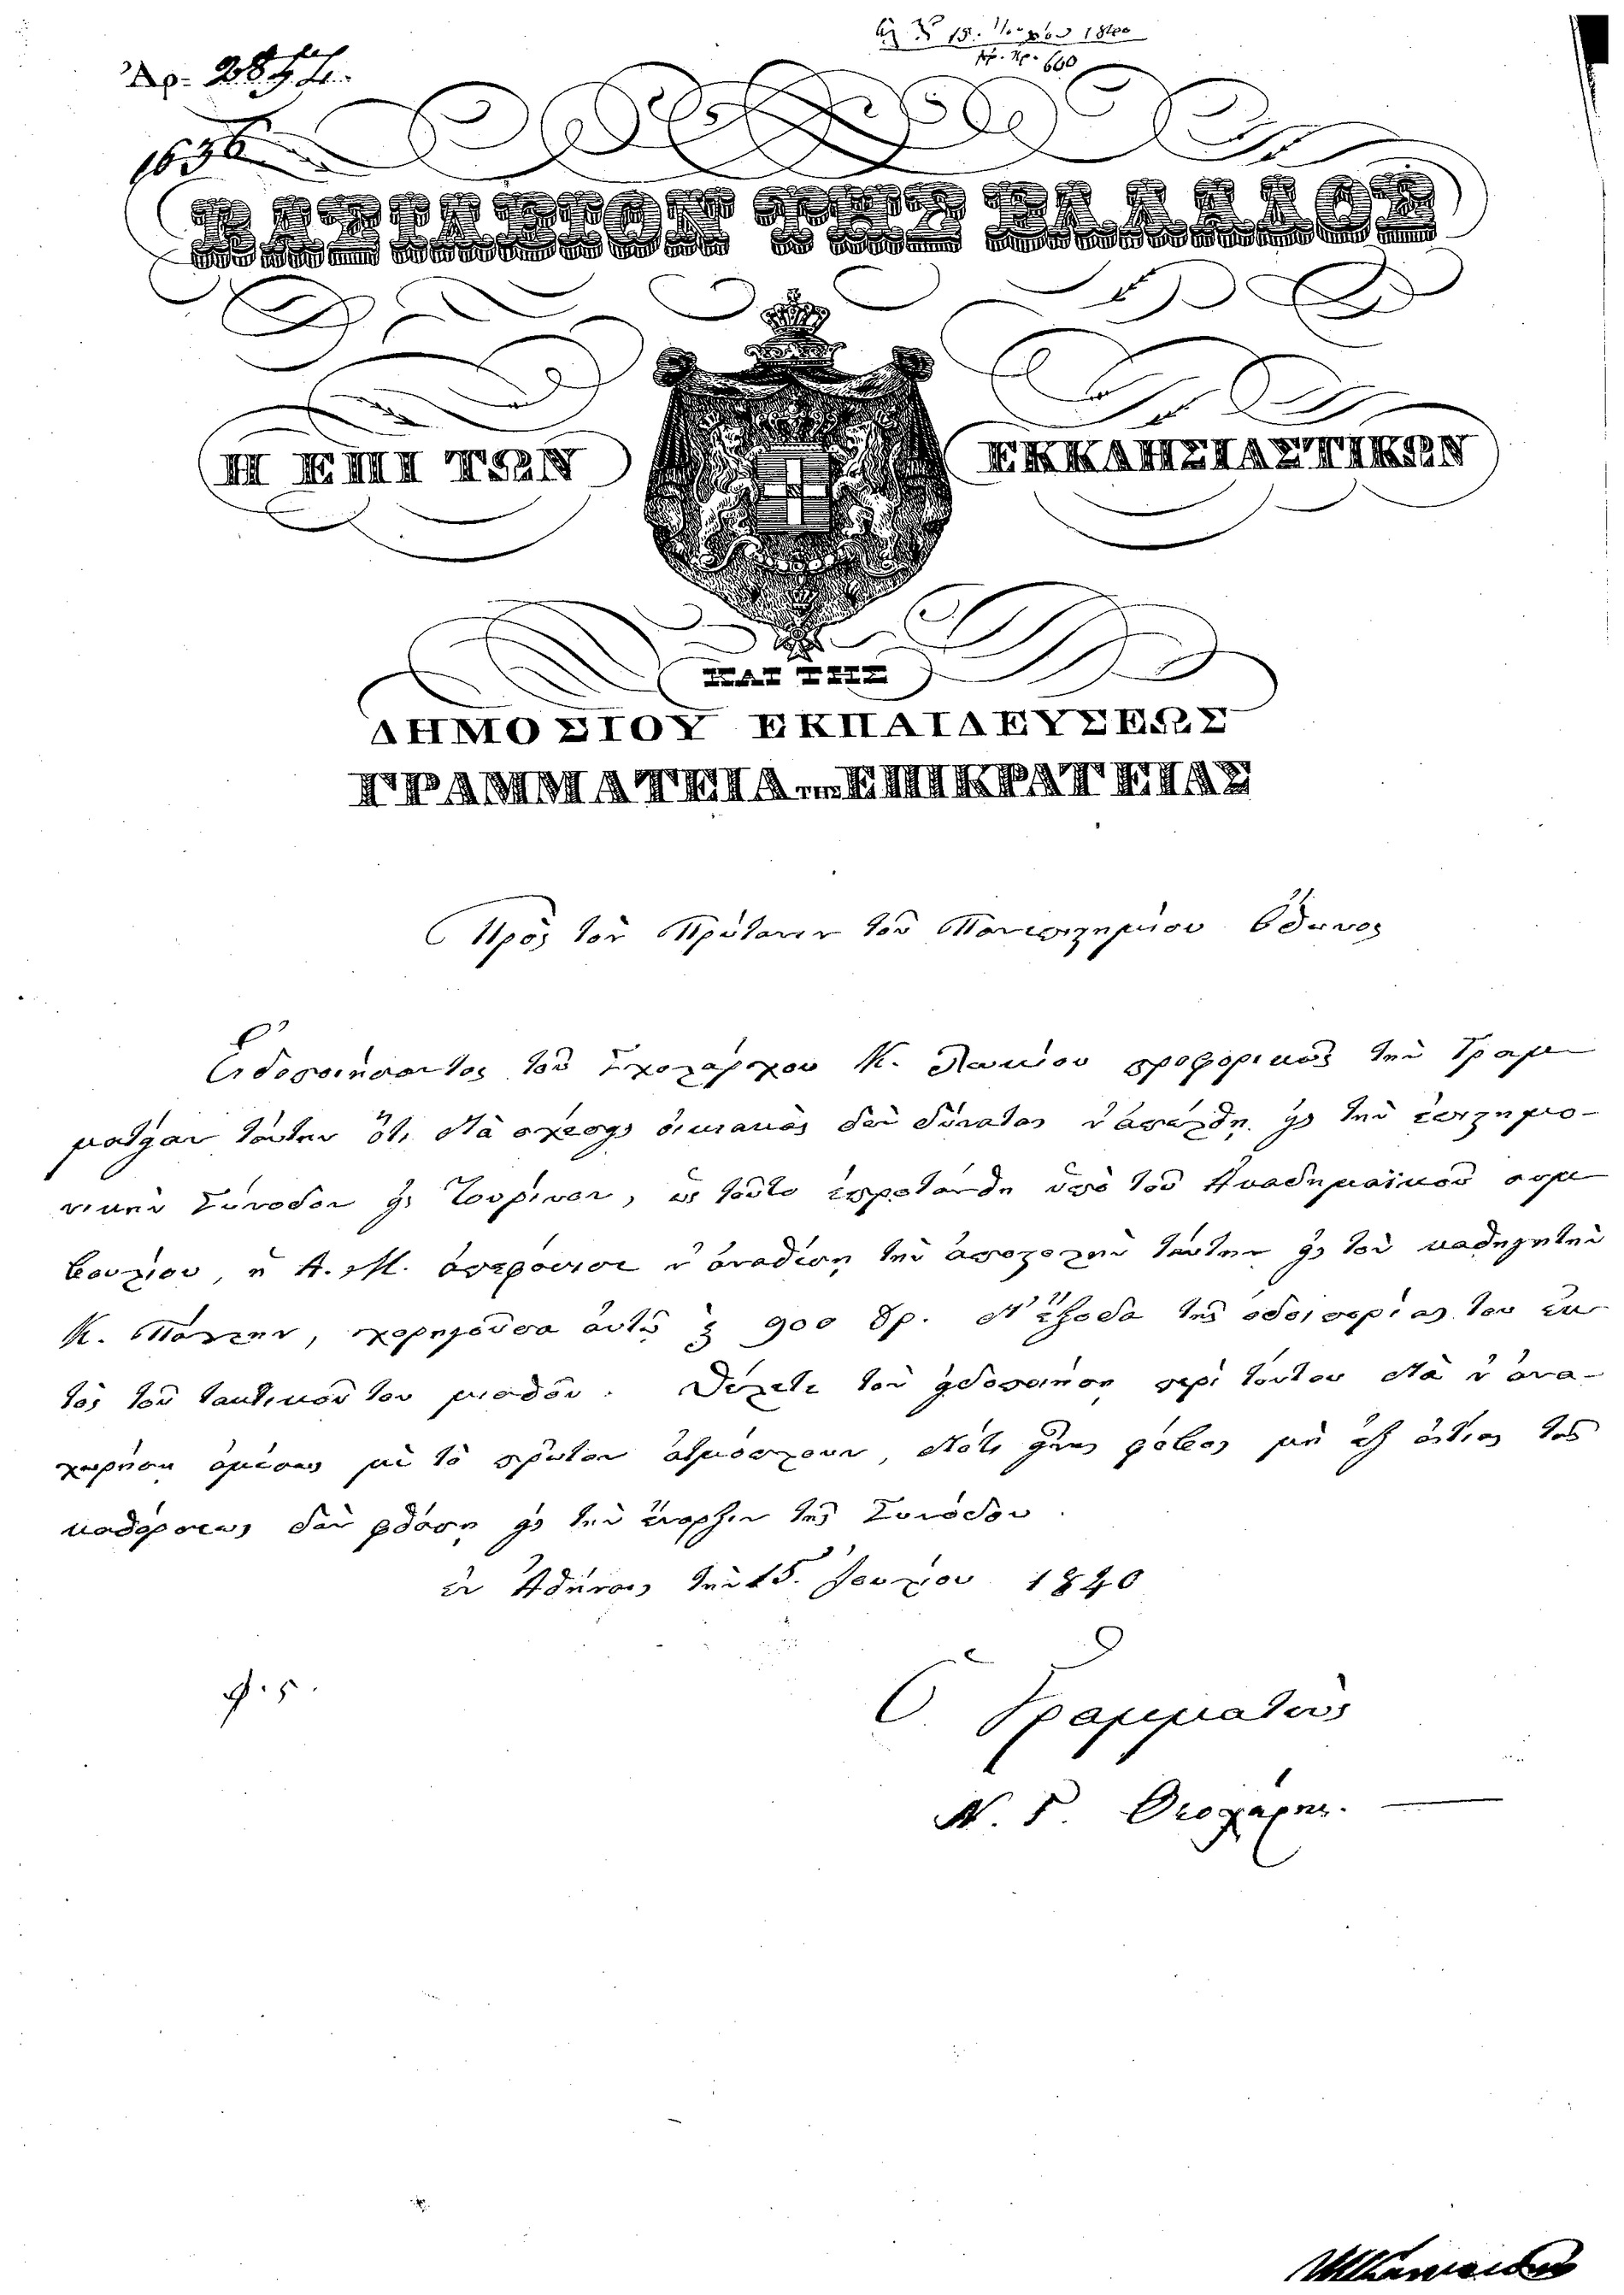 15. Ιουλίου 1840
Ἀρ. Πρ. 660
Ἀρ.
ΒΑΣΙΛΕΙΟΝ ΤΗΣ ΕΛΛΑΔΟΣ
Η ΕΠΙ ΤΩΝ ΕΚΚΛΗΣΙΑΣΤΙΚΩΝ
ΚΑΙ ΤΗΣ
ΔΗΜΟΣΙΟΥ ΕΚΠΑΙΔΕΥΣΕΩΣ
ΓΡΑΜΜΑΤΕΙΑ ΤΗΣ ΕΠΙΚΡΑΤΕΙΑΣ
Πρὸς τὸν Πρύτανιν τοῦ Πανεπιστημείου Ὄθωνος
Εἰδοποιήσαντος τοῦ Σχολάρχου Κ. προφορικῶς τὴν Γραμ
ματείαν ταύτην ὅτι διὰ σχέσεις οἰκιακὰς δὲν δύναται ν' ἀπέλθῃ εἰς τὴν ἐπιστημο-
νικὴν Σύνοδον εἰς Τουρίνον, ὡς τοῦτο ἐπροτάνθη ὑπὸ τοῦ Ἀκαδημαϊκοῦ συμ
βουλίου, ἡ Α. Μ. ἀπεφάσισε ν' ἀναθέσῃ τὴν ἀποστολὴν ταύτην εἰς τὸν καθηγητὴν
Κ. χορηγοῦσα αὐτῷ 900 δρ. δι' ἔξοδα τῆς ὁδοιπορίας του ἐκ
τὸς τοῦ τακτικοῦ του μισθοῦ. Θέλετε τὸν εἰδοποιήσῃ περὶ τούτου διὰ ν' ἀνα-
χωρήσῃ ἀμέσως μὲ τὸ πρῶτον ἀτμόπλουν, διότι εἶναι φόβος μὴ ἐξ αἰτίας τῆς
καθάρσεως δὲν φθάσῃ εἰς τὴν ἔναρξιν τῆς Συνόδου.
ἐν Ἀθήναις τὴν 15. Ἰουλίου 1840
Ὁ Γραμματεὺς
Ν. Γ. Θεοχάρης.